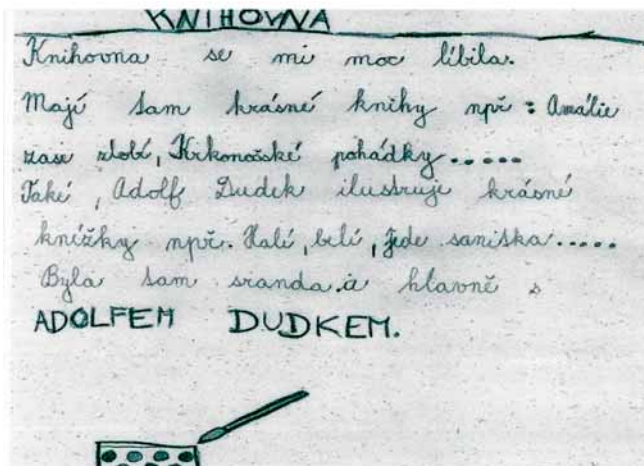 KNIHOVNA
Knihovna se mi moc líbila.
Mají tam krásné knihy např: Amálie
zase zlobí, Krkonošské pohádky.....
Také, Adolf Dudek ilustruje krásné
knížky např. Halí, belí, jede sanitka.....
Byla tam sranda a hlavně s
ADOLFEM DUDKEM.